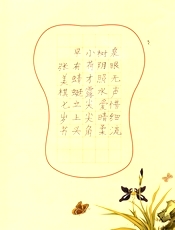 泉眼无声惜细流
树阴照水爱晴柔
小荷才露尖尖角
早有蜻蜓立上头
张美棋七岁书